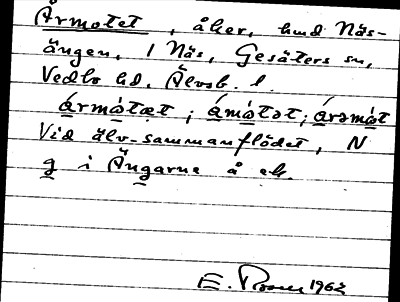 Årmotet, åker, hmd Näs-
ängen, 1 Näs, Gesäters sn,
Vedbo hd. Älvsb. l.
årmo̊tæt; åmo̊tət; årəmo̊t
Vid älv-sammanflödet, N
g i Ängarne å ek.
E. 1962